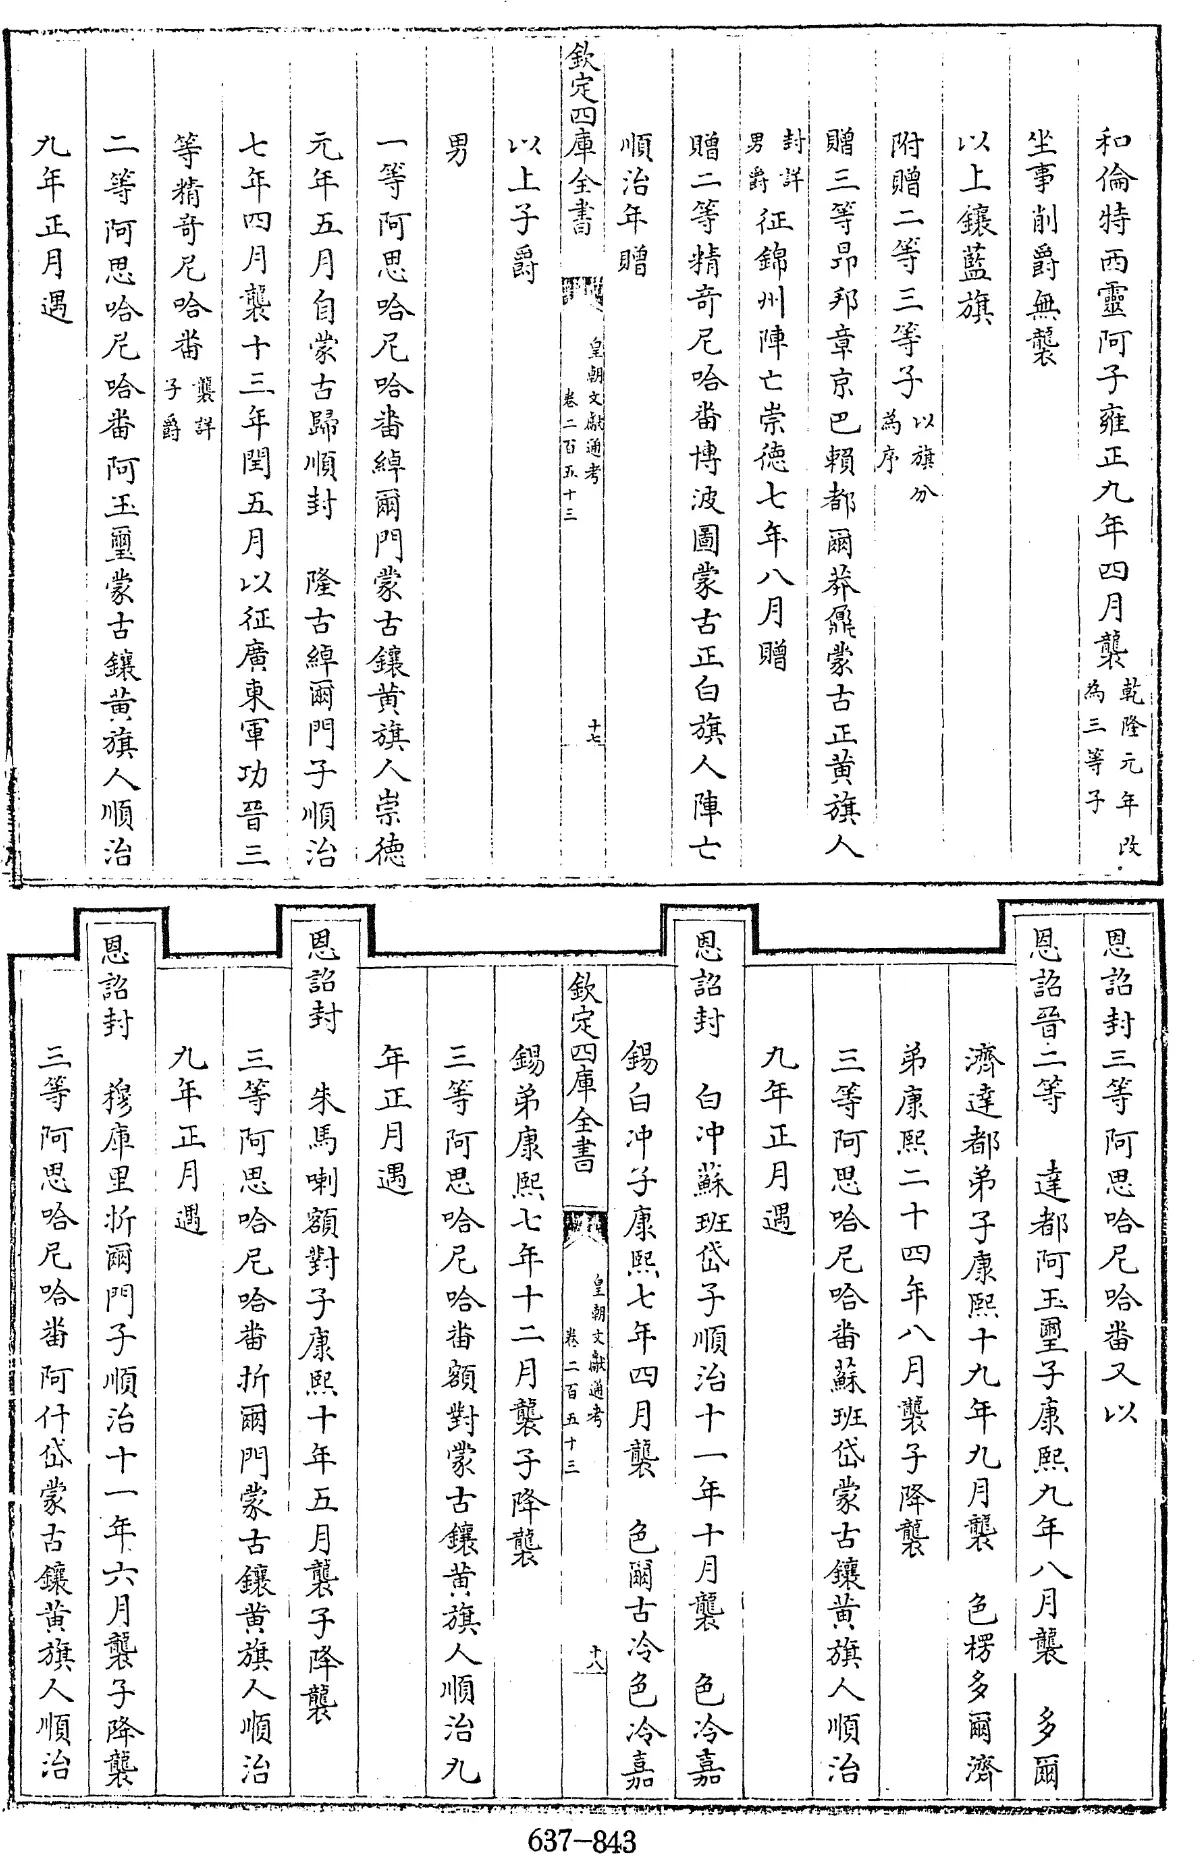 和倫特西靈阿子雍正九年四月襲乾隆元年改為三等子
坐事削爵無襲
以上鑲藍旗
附贈二等三等子以旗分為序
贈三等昻邦章京巴賴都爾莽鼐蒙古正黄旗人
封詳男爵征錦州陣亡崇德七年八月贈
贈二等精奇尼哈畨博波圖蒙古正白旗人陣亡
順治年贈
欽定四庫全書 皇朝文獻通考卷二百五十三 十七
以上子爵
男
一等阿思哈尼哈畨綽爾門蒙古鑲黄旗人崇德
元年五月自蒙古歸順封 隆古綽爾門子順治
七年四月襲十三年閏五月以征廣東軍功晉三
等精奇尼哈畨襲詳子爵
二等阿思哈尼哈畨阿玉璽蒙古鑲黄旗人順治
九年正月遇
恩詔封三等阿思哈尼哈畨又以
恩詔晉二等 達都阿玉璽子康熙九年八月襲 多爾
濟達都弟子康熙十九年九月襲 色楞多爾濟
弟康熙二十四年八月襲子降襲
三等阿思哈尼哈畨蘇班岱蒙古鑲黄旗人順治
九年正月遇
恩詔封 白冲蘇班岱子順治十一年十月襲 色冷嘉
錫白冲子康熙七年四月襲 色爾古冷色冷嘉
欽定四庫全書 皇朝文獻通考卷二百五十三 十八
錫弟康熙七年十二月襲子降襲
三等阿思哈尼哈畨額對蒙古鑲黄旗人順治九
年正月遇
恩詔封 朱馬喇額對子康熙十年五月襲子降襲
三等阿思哈尼哈畨折爾門蒙古鑲黄旗人順治
九年正月遇
恩詔封 穆庫里折爾門子順治十一年六月襲子降襲
三等阿思哈尼哈畨阿什岱蒙古鑲黄旗人順治
637-843